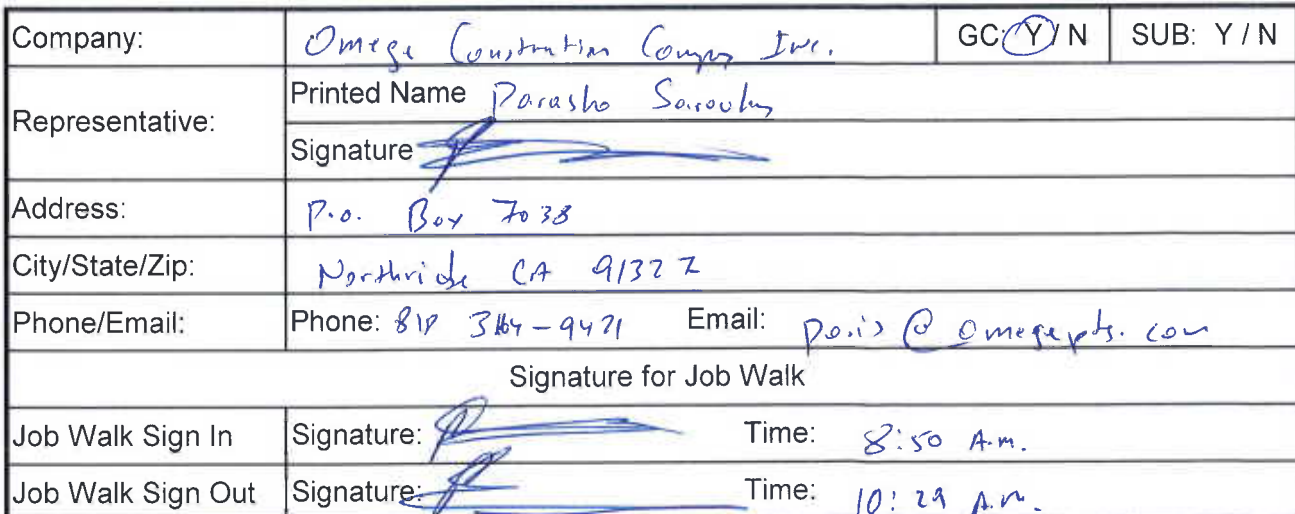 Company: Omega Construction Company Inc. GC: Y / N SUB: Y / N
Representative: Printed Name Parasho
Signature
Address: P.O. Box 7038
City/State/Zip: Northridge CA 91327
Phone/Email: Phone: 818 -9421 Email: @
Signature for Job Walk
Job Walk Sign In Signature: Time: 8:50 A.m.
Job Walk Sign Out Signature: Time: 10:29 A.m.